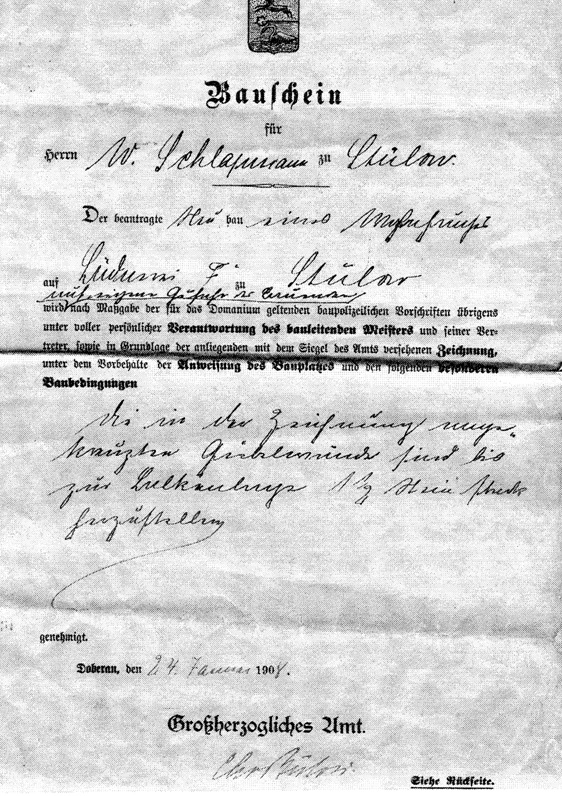 Bauschein
für
Herrn W. Schlapmann zu Stülow.
Der beantragte Neu bau eines Wohnhauses
auf Büdnerei zu Stülow
auf eigene Gefahr
wird nach Maßgabe der für das Domanium geltenden baupolizeilichen Vorschriften übrigens
unter voller persönlicher Verantwortung des bauleitenden Meisters und seiner Ver-
treter, sowie in Grundlage der anliegenden mit dem Siegel des Amts versehenen Zeichnung,
unter dem Vorbehalte der Anweisung des Bauplatzes und den folgenden besonderen
Baubedingungen
Die in der Zeichnung ange-
kreuzten Giebelwände sind bis
zur Balkenlage 1 1/2 Stein stark
herzustellen
genehmigt.
Doberan, den 24. Januar 1908.
Großherzogliches Amt.
Siehe Rückseite.